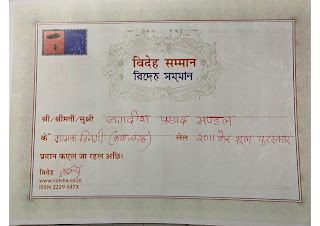 विदेह सम्मान
বিদেহ সম্মান
श्री/श्रीमती/सुश्री जगदीश प्रसाद मण्डल
के गामक जिनगी (कथा संग्रह) लेल २०११ मूल पुरस्कार
प्रदान कएल जा रहल अछि।
विदेह
www.videha.co.in
ISSN 2229-547X